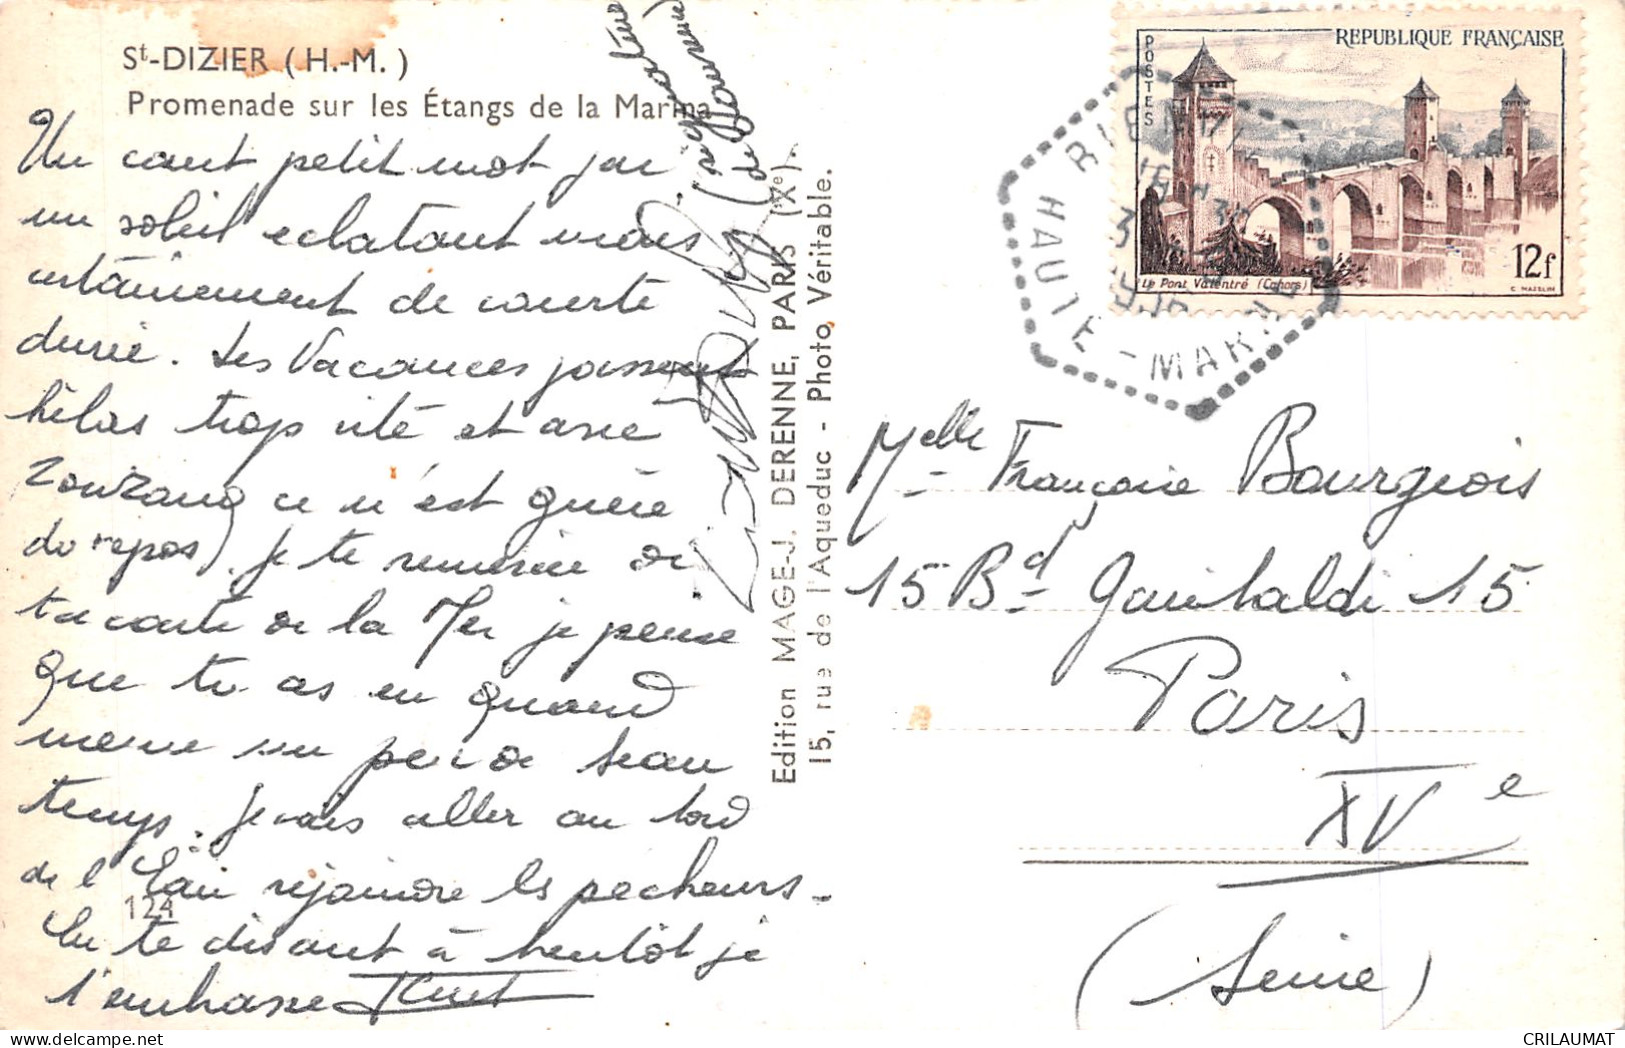 St-DIZIER (H.-M.)
Promenade sur les Étangs de la Marina
Un court petit mot par
un soleil eclatant mais
certainement de courte
durée. Les Vacances passent
hélas trop vite et avec
Zouzang ce n'est guère
du repos). Je te remercie de
ta carte de la Mer je pense
que tu as eu quand
meme un peu de beau
temps. Je vais aller au bord
de l'Eau rejoindre les pecheurs.
En te disant à bientôt je
t'embrasse
124
Edition MAGE-J. DERENNE, PARIS (Xe).
15, rue de l'Aqueduc - Photo Véritable.
POSTES
REPUBLIQUE FRANÇAISE
Le Pont Valentré (Cahors)
12f
C. MAZELIN
HAUTE-MARNE
Melle Françoise Bourgeois
15 Bd Garibaldi 15
Paris
XVe
(Seine)
CRILAUMAT